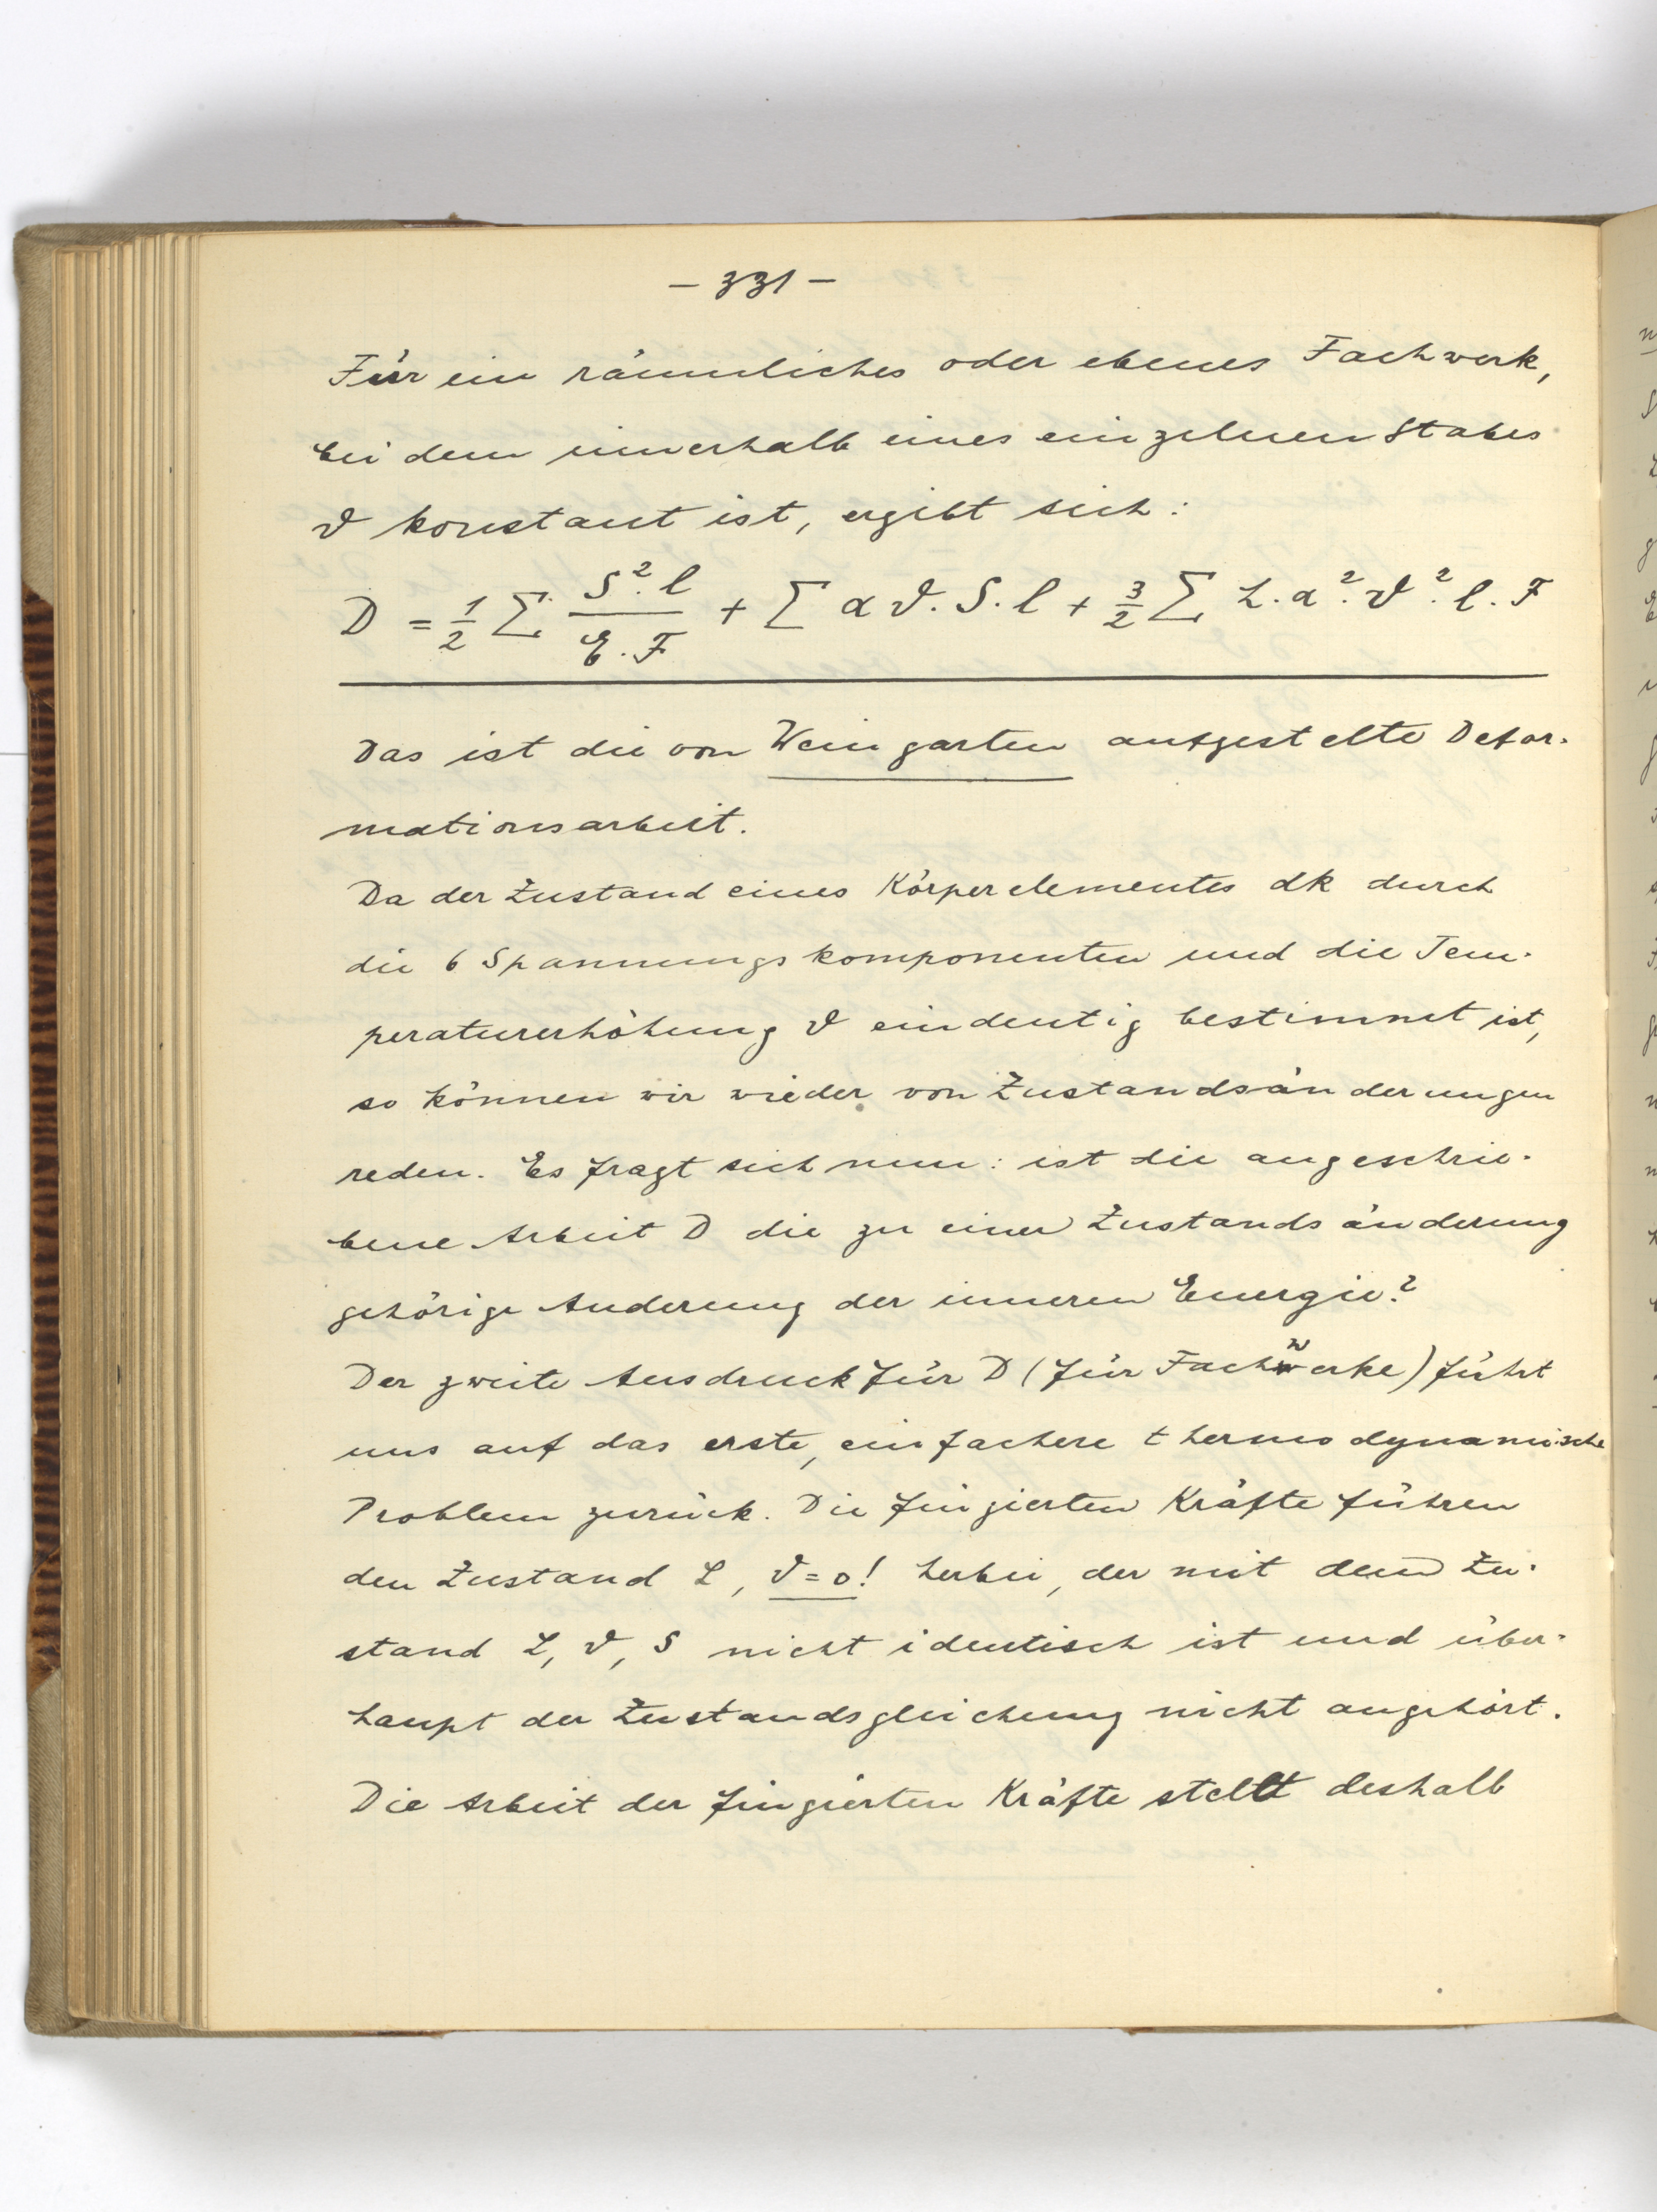 – 331 –
Für ein räumliches oder ebenes Fachwerk,
bei dem innerhalb eines einzelnen Stabes
ϑ konstant ist, ergibt sich:
D = 1/2 ∑ S².l / E.F + ∑ α ϑ. S. l + 3/2 ∑ L. α². ϑ². l. F
Das ist die von Weingarten aufgestelte Defor-
mationsarbeit.
Da der Zustand eines Körperelementes dk durch
die 6 Spannungskomponenten und die Tem-
peraturerhöhung ϑ eindeutig bestimmt ist,
so können wir wieder von Zustandsänderungen
reden. Es fragt sich nun: ist die angeschrie-
bene Arbeit D die zu einer Zustandsänderung
gehörige Anderung der inneren Energie?
Der zweite Ausdruck für D (für Fachwerke) führt
uns auf das erste, einfachere thermodynamische
Problem zurück. Die fingierten Kräfte führen
den Zustand L, ϑ = 0! herbei, der mit dem Zu-
stand L, ϑ, S nicht identisch ist und über-
haupt der Zustandsgleichung nicht angehört.
Die Arbeit der fingierten Kräfte stellt deshalb